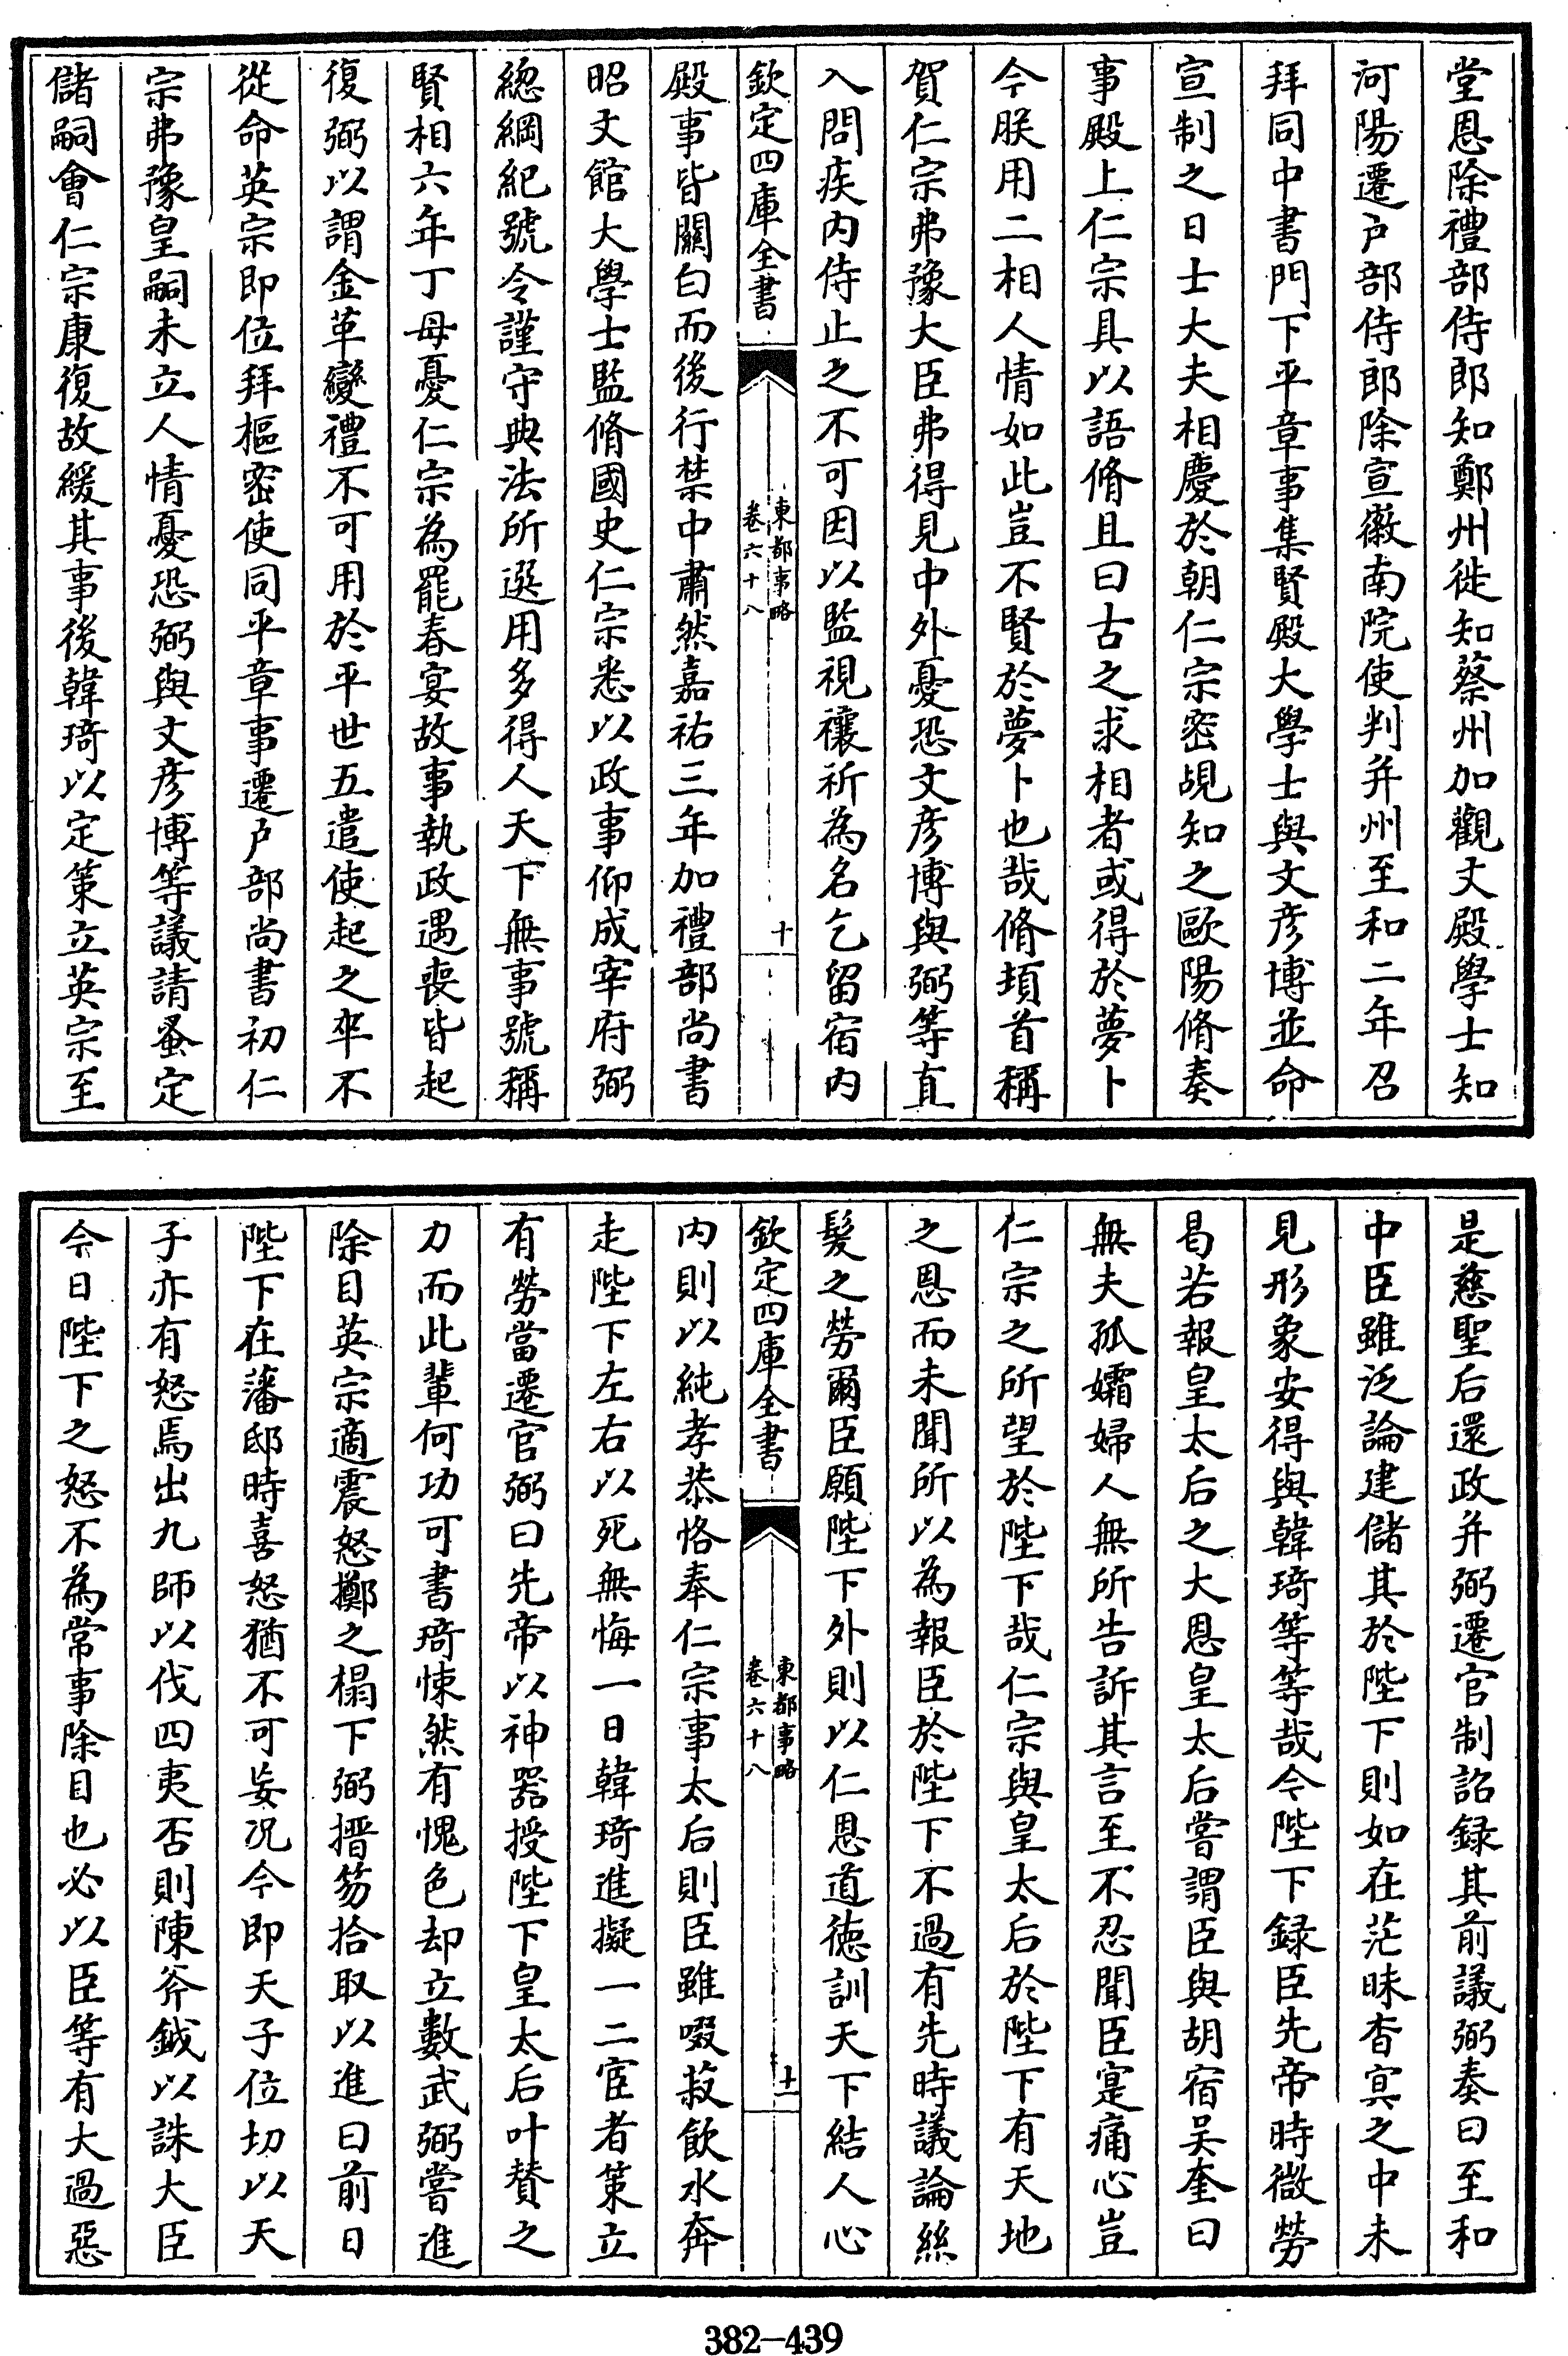 堂恩除禮部侍郎知鄭州徙知蔡州加觀文殿學士知
河陽遷户部侍郎除宣徽南院使判并州至和二年召
拜同中書門下平章事集賢殿大學士與文彦博並命
宣制之日士大夫相慶於朝仁宗密覘知之歐陽脩奏
事殿上仁宗具以語脩且曰古之求相者或得於夢卜
今朕用二相人情如此豈不賢於夢卜也哉脩頓首稱
賀仁宗弗豫大臣弗得見中外憂恐文彦博與弼等直
入問疾内侍止之不可因以監視禳祈為名乞留宿内
欽定四庫全書
東都事略
卷六十八
十
殿事皆關白而後行禁中肅然嘉祐三年加禮部尚書
昭文館大學士監脩國史仁宗悉以政事仰成宰府弼
總綱紀號令謹守典法所選用多得人天下無事號稱
賢相六年丁母憂仁宗為罷春宴故事執政遇喪皆起
復弼以謂金革變禮不可用於平世五遣使起之卒不
從命英宗即位拜樞密使同平章事遷户部尚書初仁
宗弗豫皇嗣未立人情憂恐弼與文彦博等議請蚤定
儲嗣會仁宗康復故緩其事後韓琦以定策立英宗至
是慈聖后還政并弼遷官制詔録其前議弼奏曰至和
中臣雖泛論建儲其於陛下則如在茫昧杳冥之中未
見形象安得與韓琦等等哉令陛下録臣先帝時微勞
曷若報皇太后之大恩皇太后嘗謂臣與胡宿吴奎曰
無夫孤孀婦人無所告訴其言至不忍聞臣寔痛心豈
仁宗之所望於陛下哉仁宗與皇太后於陛下有天地
之恩而未聞所以為報臣於陛下不過有先時議論絲
髮之勞爾臣願陛下外則以仁恩道徳訓天下結人心
欽定四庫全書
東都事略
卷六十八
十一
内則以純孝恭恪奉仁宗事太后則臣雖啜菽飲水奔
走陛下左右以死無悔一日韓琦進擬一二宦者策立
有勞當遷官弼曰先帝以神器授陛下皇太后叶賛之
力而此輩何功可書琦悚然有愧色却立數武弼嘗進
除目英宗適震怒擲之榻下弼搢笏拾取以進曰前日
陛下在藩邸時喜怒猶不可妄况今即天子位切以天
子亦有怒焉出九師以伐四夷否則陳斧鉞以誅大臣
今日陛下之怒不為常事除目也必以臣等有大過惡
382—439